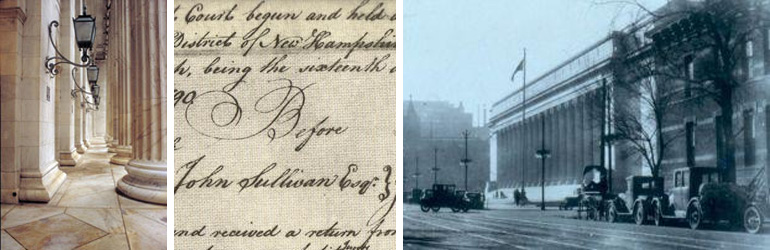 t Court begun and held a
District of New Hampshire
h, being the sixteenth d
790.
Before
John Sullivan Esqr. }
and received a return from